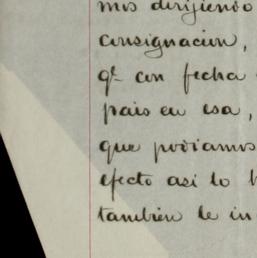 mos dirijiendo
consignacion,
qe con fecha
pais en esa,
que podiamos
efecto asi lo
tambien le in